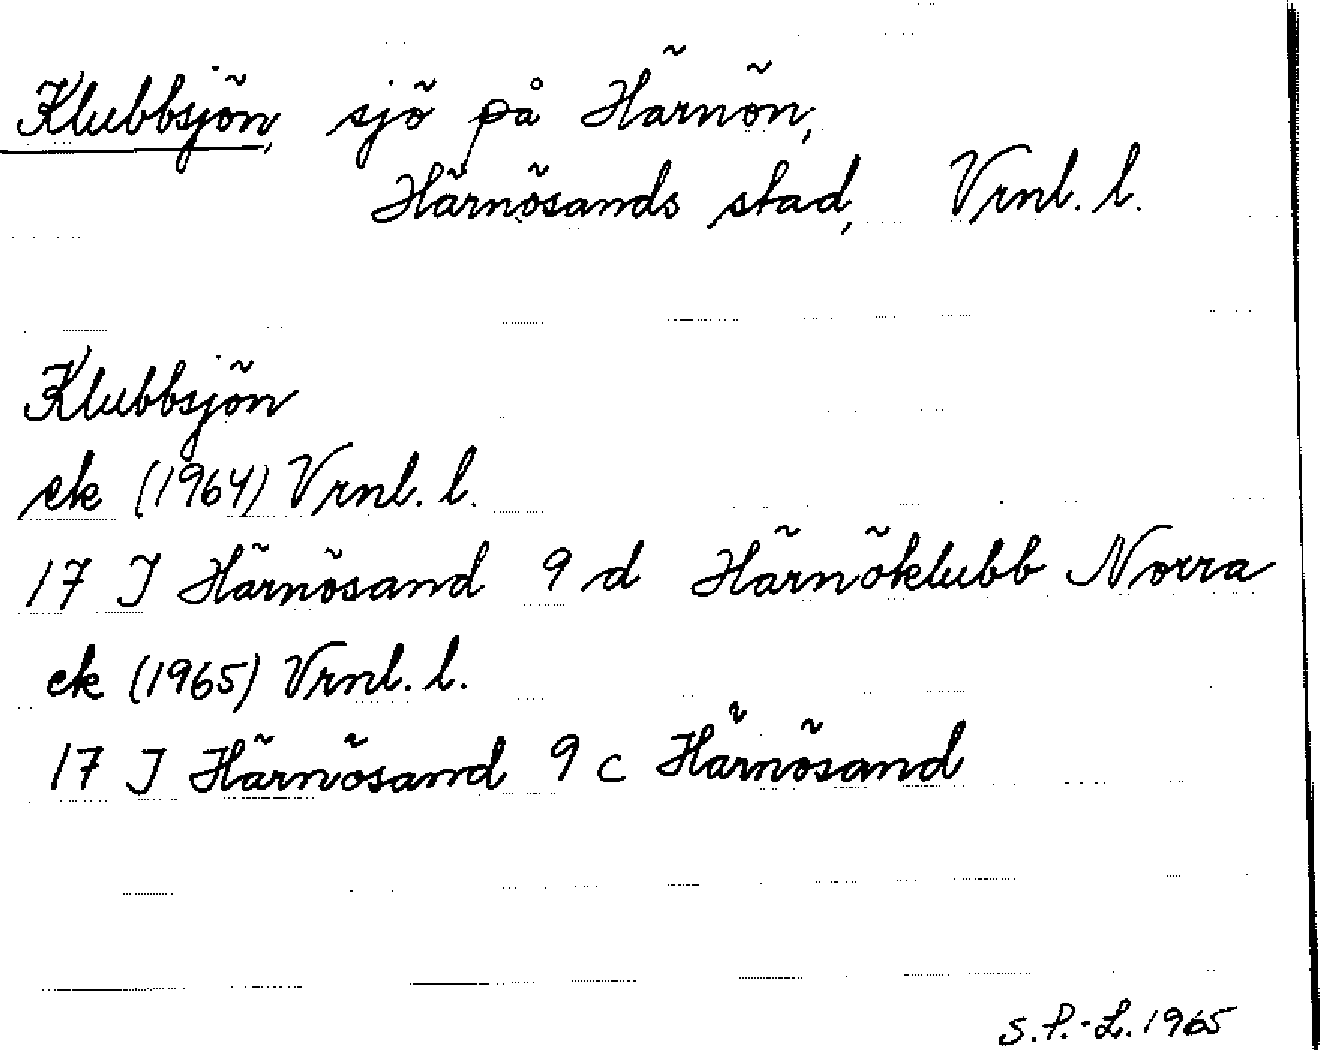 Klubbsjön, sjö på Härnön,
Härnösands stad, Vrnl. l.
Klubbsjön
ek (1964) Vrnl. l.
17 J Härnösand 9 d Härnöklubb Norra
ek (1965) Vrnl. l.
17 J Härnösand 9 c Härnösand
S. P.-L. 1965